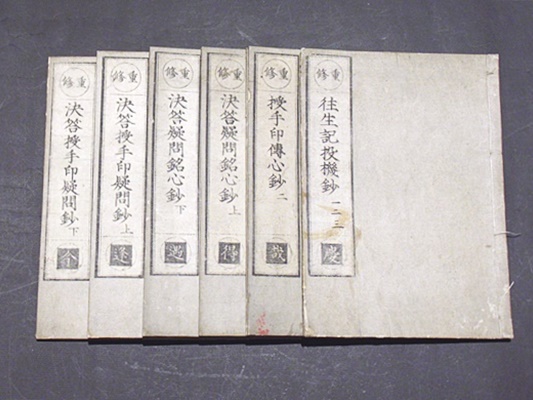 重修
往生記投機鈔 一二三
慶
重修
授手印傳心鈔 二
重修
決答疑問銘心鈔 上
得
重修
決答疑問銘心鈔 下
遇
重修
決答授手印疑問鈔 上
逢
重修
決答授手印疑問鈔 下
今